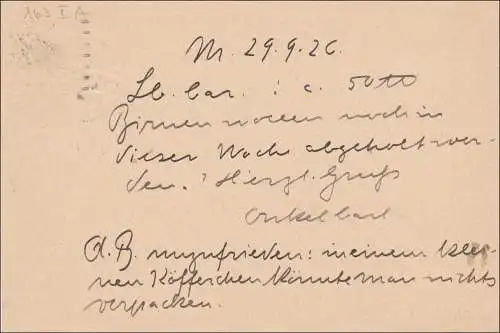 163 I A
M. 29.9.26.
Lb. Carl: c. 50 ℔
Birnen wollen noch in
dieser Woche abgeholt wer-
den. Herzl. Gruß
Onkel Carl
A. B. unzufrieden: in einem klei-
nen Köfferchen könnte man nichts
verpacken.